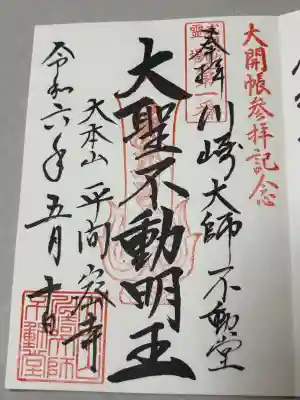 大開帳参拝記念
奉拝 川崎大師不動堂
大聖不動明王
大本山 平間寺
令和六年五月十日